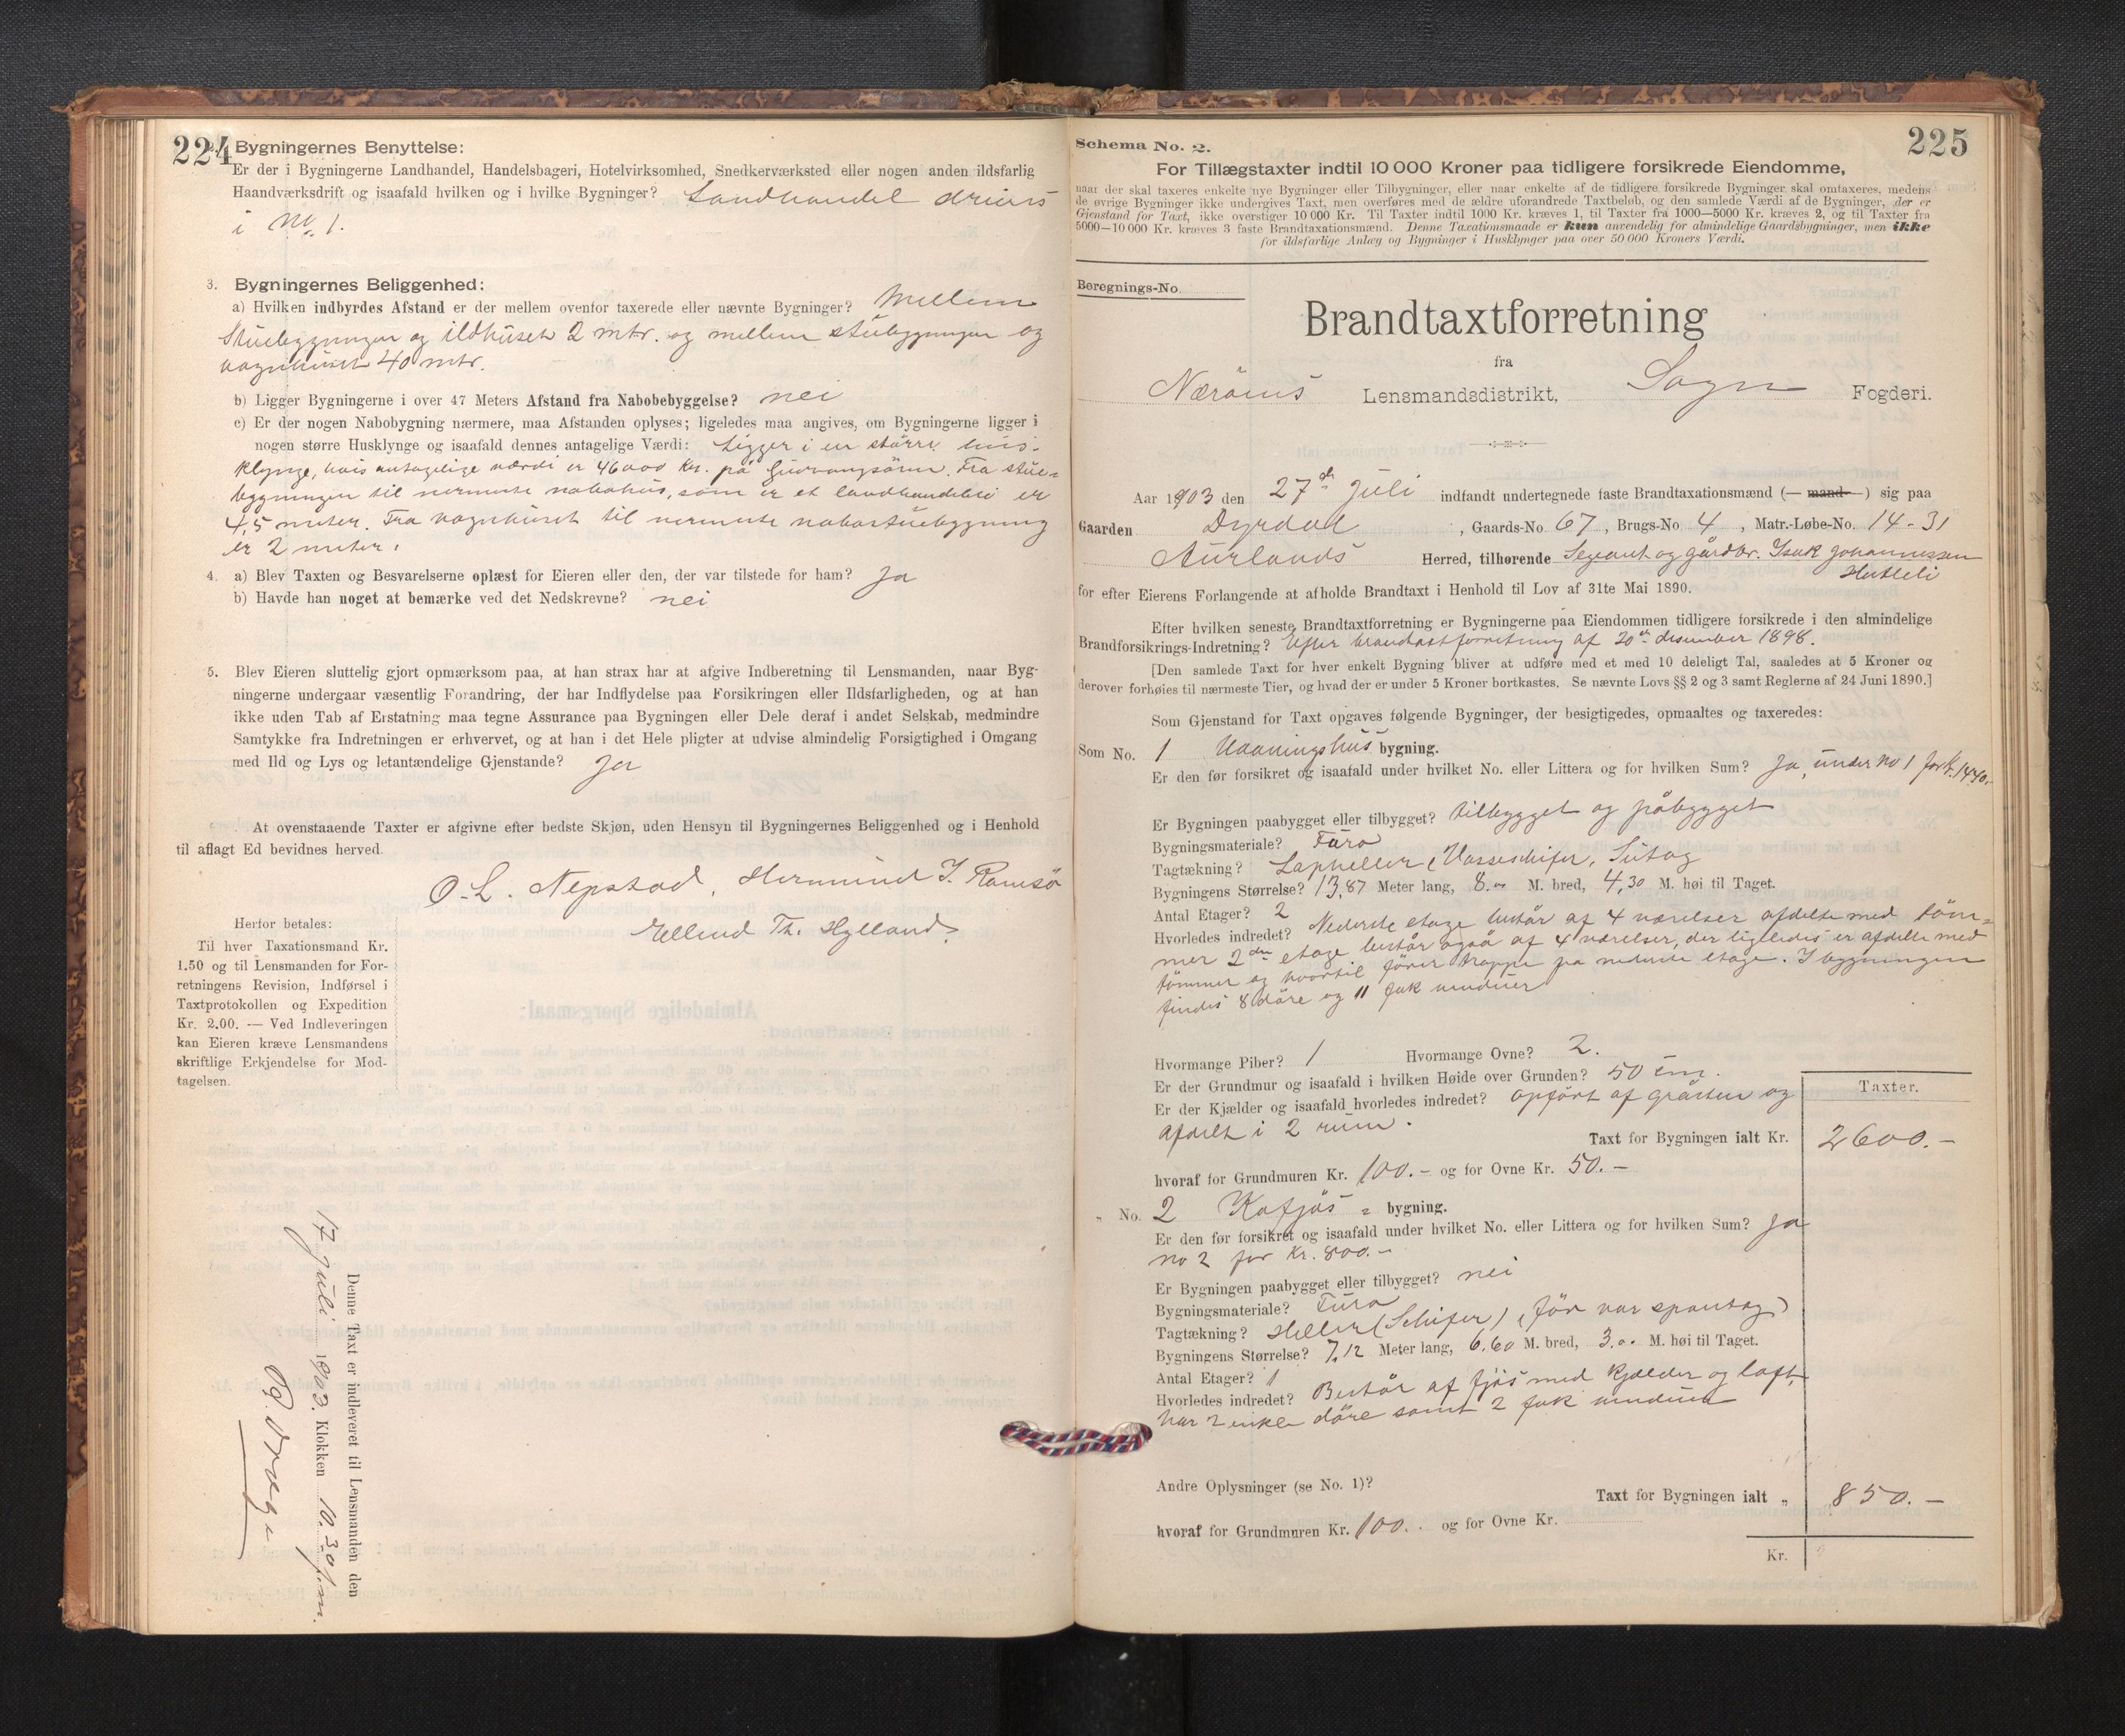 224
2. Bygningernes Benyttelse:
Er der i Bygningerne Landhandel, Handelsbageri, Hotelvirksomhed, Snedkerværksted eller nogen anden ildsfarlig
Haandværksdrift og isaafald hvilken og i hvilke Bygninger? Landhandel drives
i No. 1.
3. Bygningernes Beliggenhed:
a) Hvilken indbyrdes Afstand er der mellem ovenfor taxerede eller nævnte Bygninger? Mellem
Stuebygningen og ildhuset 2 mtr. og mellem stuebygningen og
vognhuset 40 mtr.
b) Ligger Bygningerne i over 47 Meters Afstand fra Nabobebyggelse? nei
c) Er der nogen Nabobygning nærmere, maa Afstanden oplyses; ligeledes maa angives, om Bygningerne ligger i
nogen større Husklynge og isaafald dennes antagelige Værdi: Ligger i en större hus-
klynge, hvis antagelige værdi er 46000 Kr. på Gudvangsören. Fra stue-
bygningen til nermeste nabohus, som er et landhandleri er
4,5 meter. Fra vognhuset til nermeste nabostuebygning
er 2 meter.
4. a) Blev Taxten og Besvarelserne oplæst for Eieren eller den, der var tilstede for ham? Ja
b) Havde han noget at bemærke ved det Nedskrevne? nei
5. Blev Eieren sluttelig gjort opmærksom paa, at han strax har at afgive Indberetning til Lensmanden, naar Byg-
ningerne undergaar væsentlig Forandring, der har Indflydelse paa Forsikringen eller Ildsfarligheden, og at han
ikke uden Tab af Erstatning maa tegne Assurance paa Bygningen eller Dele deraf i andet Selskab, medmindre
Samtykke fra Indretningen er erhvervet, og at han i det Hele pligter at udvise almindelig Forsigtighed i Omgang
med Ild og Lys og letantændelige Gjenstande? Ja
At ovenstaaende Taxter er afgivne efter bedste Skjøn, uden Hensyn til Bygningernes Beliggenhed og i Henhold
til aflagt Ed bevidnes herved.
O. L. Nepstad, Hermund I. Ramsö
Ellend Th. Hylland.
Herfor betales:
Til hver Taxationsmand Kr.
1.50 og til Lensmanden for For-
retningens Revision, Indførsel i
Taxtprotokollen og Expedition
Kr. 2.00. — Ved Indleveringen
kan Eieren kræve Lensmandens
skriftlige Erkjendelse for Mod-
tagelsen.
Denne Taxt er indleveret til Lensmanden den
17 juli 1903. Klokken 10.30 fm.
225
Schema No. 2.
For Tillægstaxter indtil 10 000 Kroner paa tidligere forsikrede Eiendomme,
naar der skal taxeres enkelte nye Bygninger eller Tilbygninger, eller naar enkelte af de tidligere forsikrede Bygninger skal omtaxeres, medens
de øvrige Bygninger ikke undergives Taxt, men overføres med de ældre uforandrede Taxtbeløb, og den samlede Værdi af de Bygninger, der er
Gjenstand for Taxt, ikke overstiger 10 000 Kr. Til Taxter indtil 1000 Kr. kræves 1, til Taxter fra 1000—5000 Kr. kræves 2, og til Taxter fra
5000—10 000 Kr. kræves 3 faste Brandtaxationsmænd. Denne Taxationsmaade er kun anvendelig for almindelige Gaardsbygninger, men ikke
for ildsfarlige Anlæg og Bygninger i Husklynger paa over 50 000 Kroners Værdi.
Beregnings-No.
Brandtaxtforretning
fra
Næröens Lensmandsdistrikt, Sogn Fogderi.
Aar 1903 den 27de juli indfandt undertegnede faste Brandtaxationsmænd (— mand —) sig paa
Gaarden Dyrdal, Gaards-No 67, Brugs-No 4, Matr.-Løbe-No. 14-31
Aurlands Herred, tilhørende Sergeant og gårdbr. Isak Johannessen
Hutleli
for efter Eierens Forlangende at afholde Brandtaxt i Henhold til Lov af 31te Mai 1890.
Efter hvilken seneste Brandtaxtforretning er Bygningerne paa Eiendommen tidligere forsikrede i den almindelige
Brandforsikrings-Indretning? Efter brandtaxtforretning af 20de desember 1898.
[Den samlede Taxt for hver enkelt Bygning bliver at udføre med et med 10 deleligt Tal, saaledes at 5 Kroner og
derover forhøies til nærmeste Tier, og hvad der er under 5 Kroner bortkastes. Se nævnte Lovs §§ 2 og 3 samt Reglerne af 24 Juni 1890.]
Som Gjenstand for Taxt opgaves følgende Bygninger, der besigtigedes, opmaaltes og taxeredes:
Som No. 1 Vaaningshus bygning.
Er den før forsikret og isaafald under hvilket No. eller Littera og for hvilken Sum? Ja, under no 1 for k. 1440.-
Er Bygningen paabygget eller tilbygget? tilbygget og påbygget
Bygningsmateriale? Furo
Tagtækning? Lapheller, Vosseskifer, Sutag
Bygningens Størrelse? 13,87 Meter lang, 8.00 M. bred, 4,30 M. høi til Taget.
Antal Etager? 2
Hvorledes indredet? Nederste etage består af 4 værelser afdelte med töm-
mer 2den etage består også af 4 værelser, der ligeledes er afdelte med
tömmer og hvortil förer trappe på nederste etage. I bygningen
findes 8 döre og 11 fak vinduer
Hvormange Piber? 1 Hvormange Ovne? 2.
Er der Grundmur og isaafald i hvilken Høide over Grunden? 50 cm.
Er der Kjælder og isaafald hvorledes indredet? opfört af gråsten og
afdelt i 2 rum.
Taxter.
Taxt for Bygningen ialt Kr. 2600.-
hvoraf for Grundmuren Kr. 100.- og for Ovne Kr. 50.-
" No. 2 Kofjös - bygning.
Er den før forsikret og isaafald under hvilket No. eller Littera og for hvilken Sum? Ja
no 2 for Kr. 800.-
Er Bygningen paabygget eller tilbygget? nei
Bygningsmateriale? Furo
Tagtækning? Heller (Schifer), (för var spontag)
Bygningens Størrelse? 7,12 Meter lang, 6.60 M. bred, 3.0. M. høi til Taget.
Antal Etager? 1
Hvorledes indredet? Består af fjös med kjælder og loft,
har 2 enkle döre samt 2 fak vinduer
Andre Oplysninger (se No. 1)?
Taxt for Bygningen ialt „ 850.-
hvoraf for Grundmuren Kr. 100.. og for Ovne Kr.
Kr.